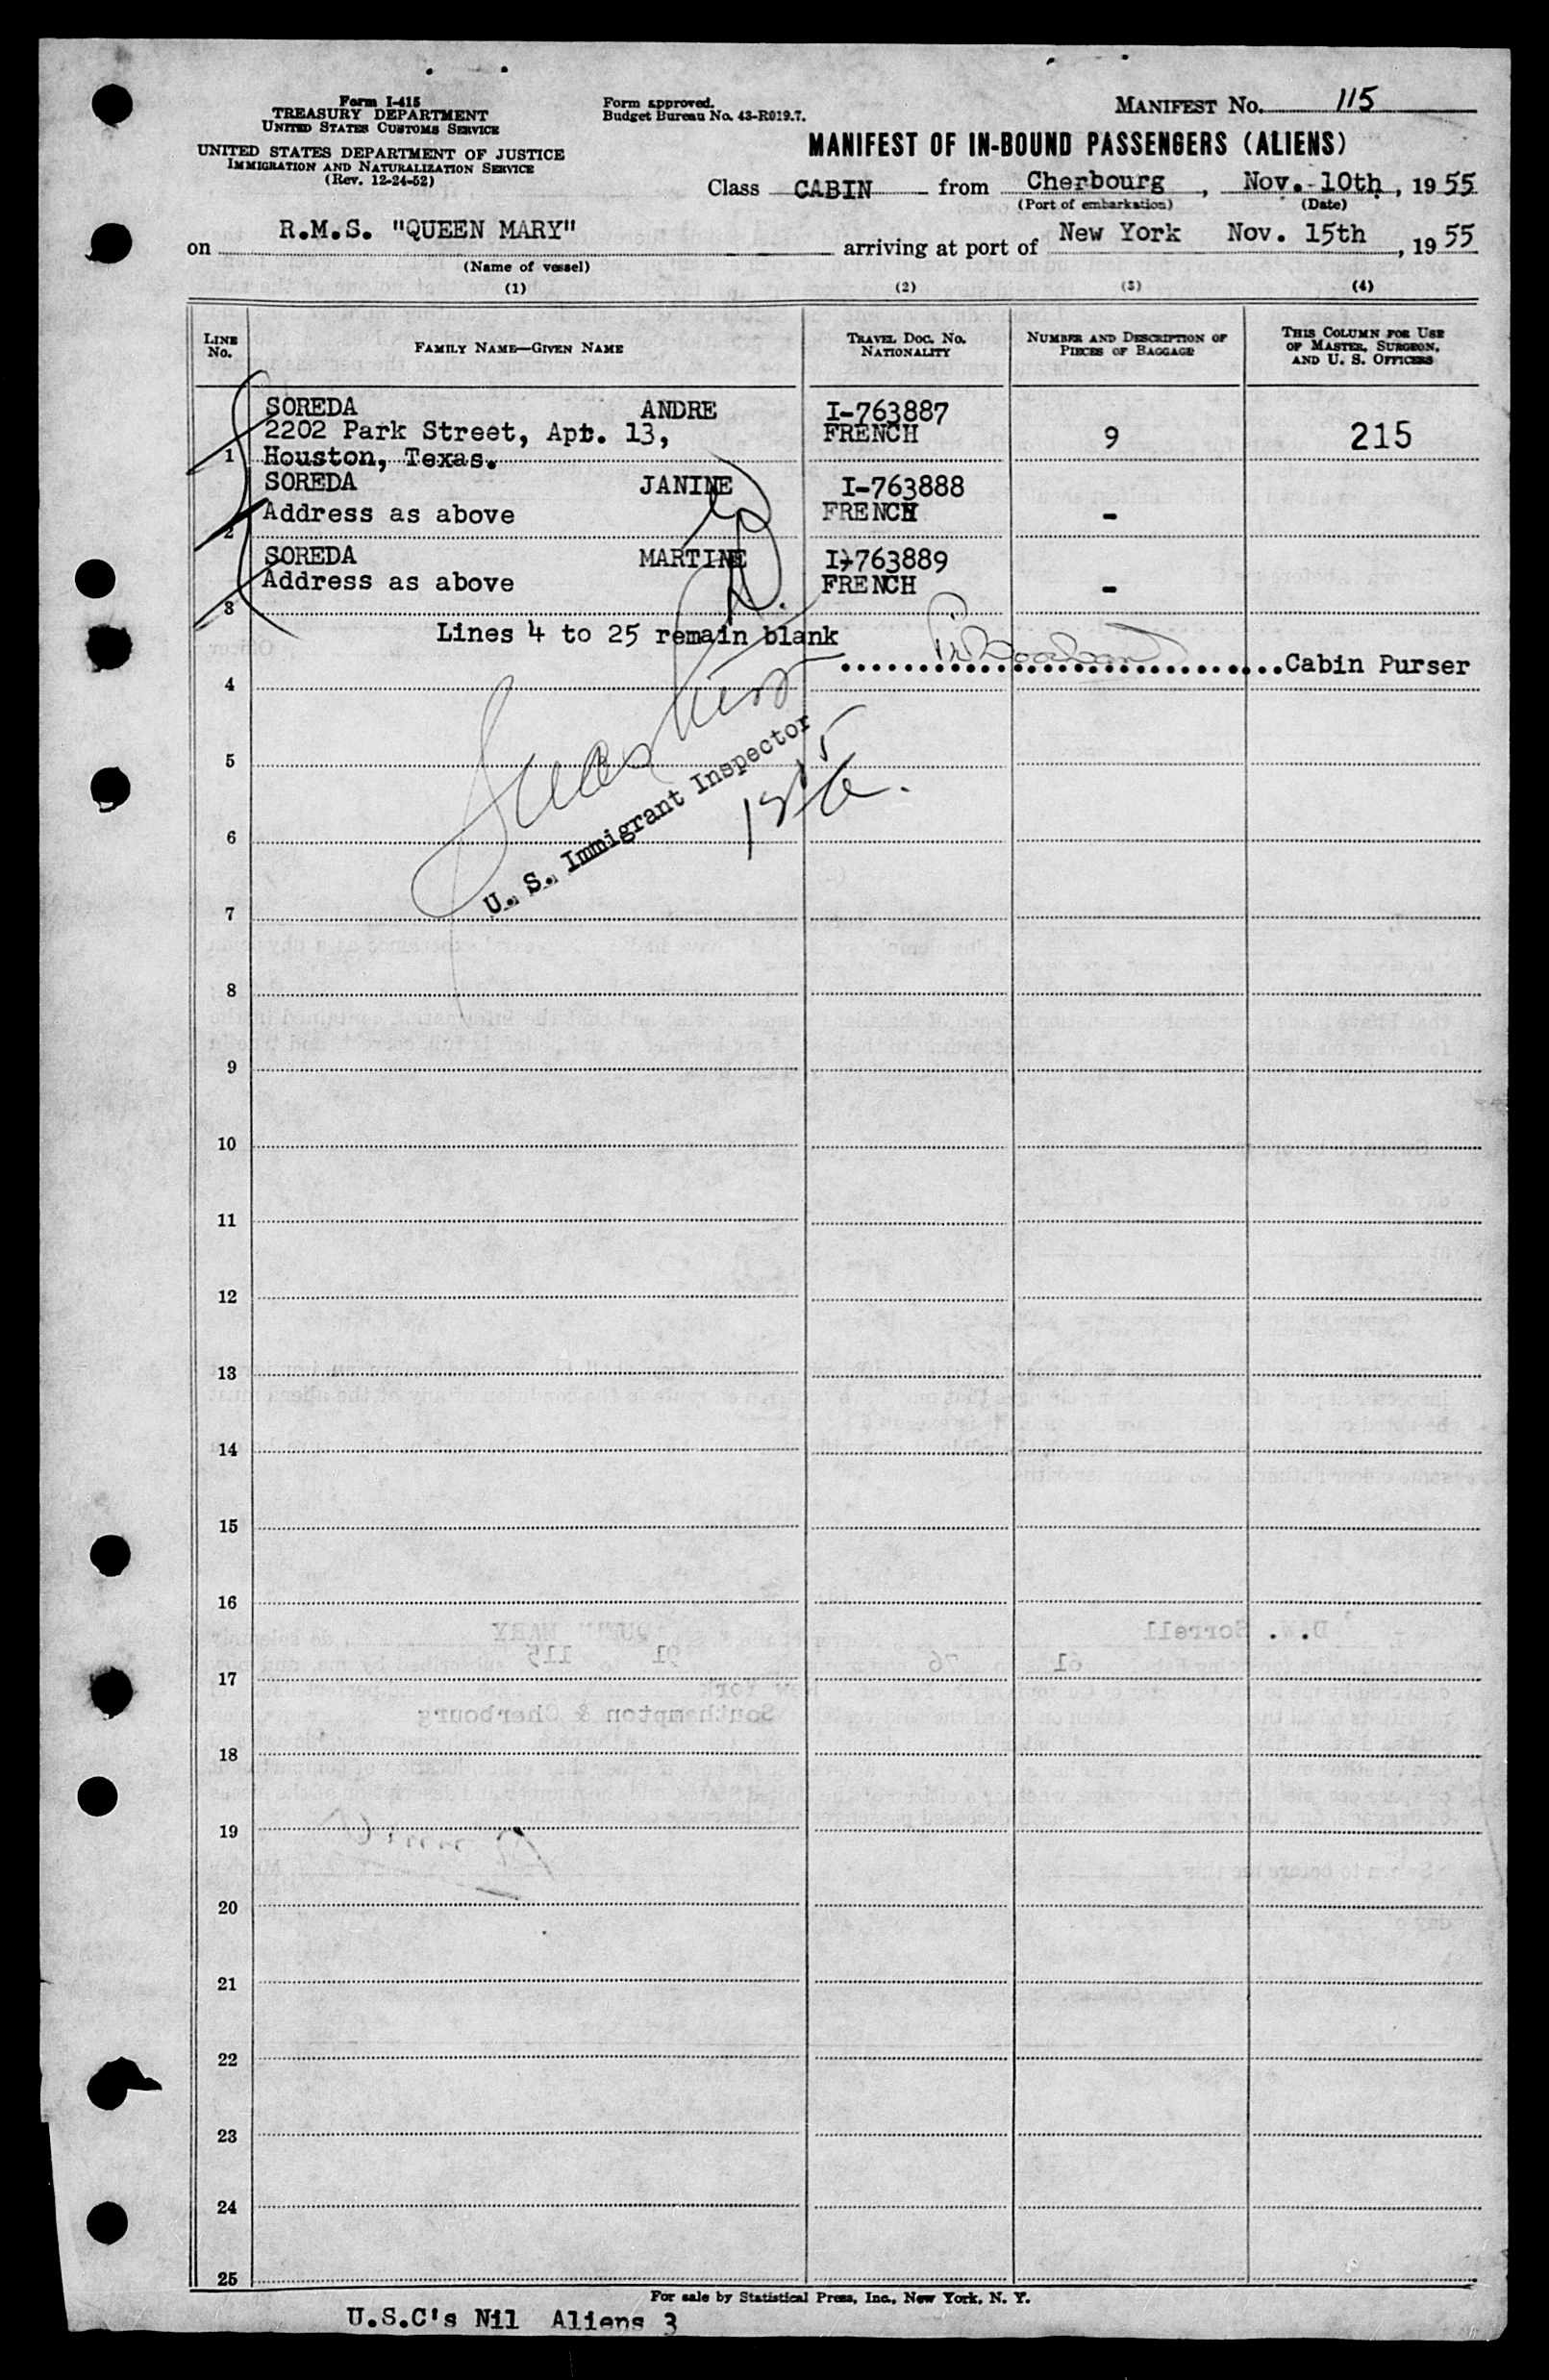 Form I-415
TREASURY DEPARTMENT
UNITED STATES CUSTOMS SERVICE
UNITED STATES DEPARTMENT OF JUSTICE
IMMIGRATION AND NATURALIZATION SERVICE
(Rev. 12-24-52)
Form approved.
Budget Bureau No. 43-R019.7.
MANIFEST No. 115
MANIFEST OF IN-BOUND PASSENGERS (ALIENS)
Class CABIN from Cherbourg, Nov. 10th, 1955
(Port of embarkation) (Date)
on R.M.S. "QUEEN MARY" arriving at port of New York Nov. 15th, 1955
(Name of vessel)
(1) (2) (3) (4)
LINE No. FAMILY NAME—GIVEN NAME TRAVEL DOC. NO. NATIONALITY NUMBER AND DESCRIPTION OF PIECES OF BAGGAGE THIS COLUMN FOR USE OF MASTER, SURGEON, AND U. S. OFFICERS
SOREDA ANDRE I-763887
2202 Park Street, Apt. 13, FRENCH 9 215
1 Houston, Texas.
SOREDA JANINE I-763888
Address as above FRENCH -
2
SOREDA MARTINE I-763889
Address as above FRENCH -
3
Lines 4 to 25 remain blank
Cabin Purser
4
5
U. S. Immigrant Inspector
6
7
8
9
10
11
12
13
14
15
16
17
18
19
20
21
22
23
24
25
For sale by Statistical Press, Inc., New York, N. Y.
U.S.C's Nil Aliens 3